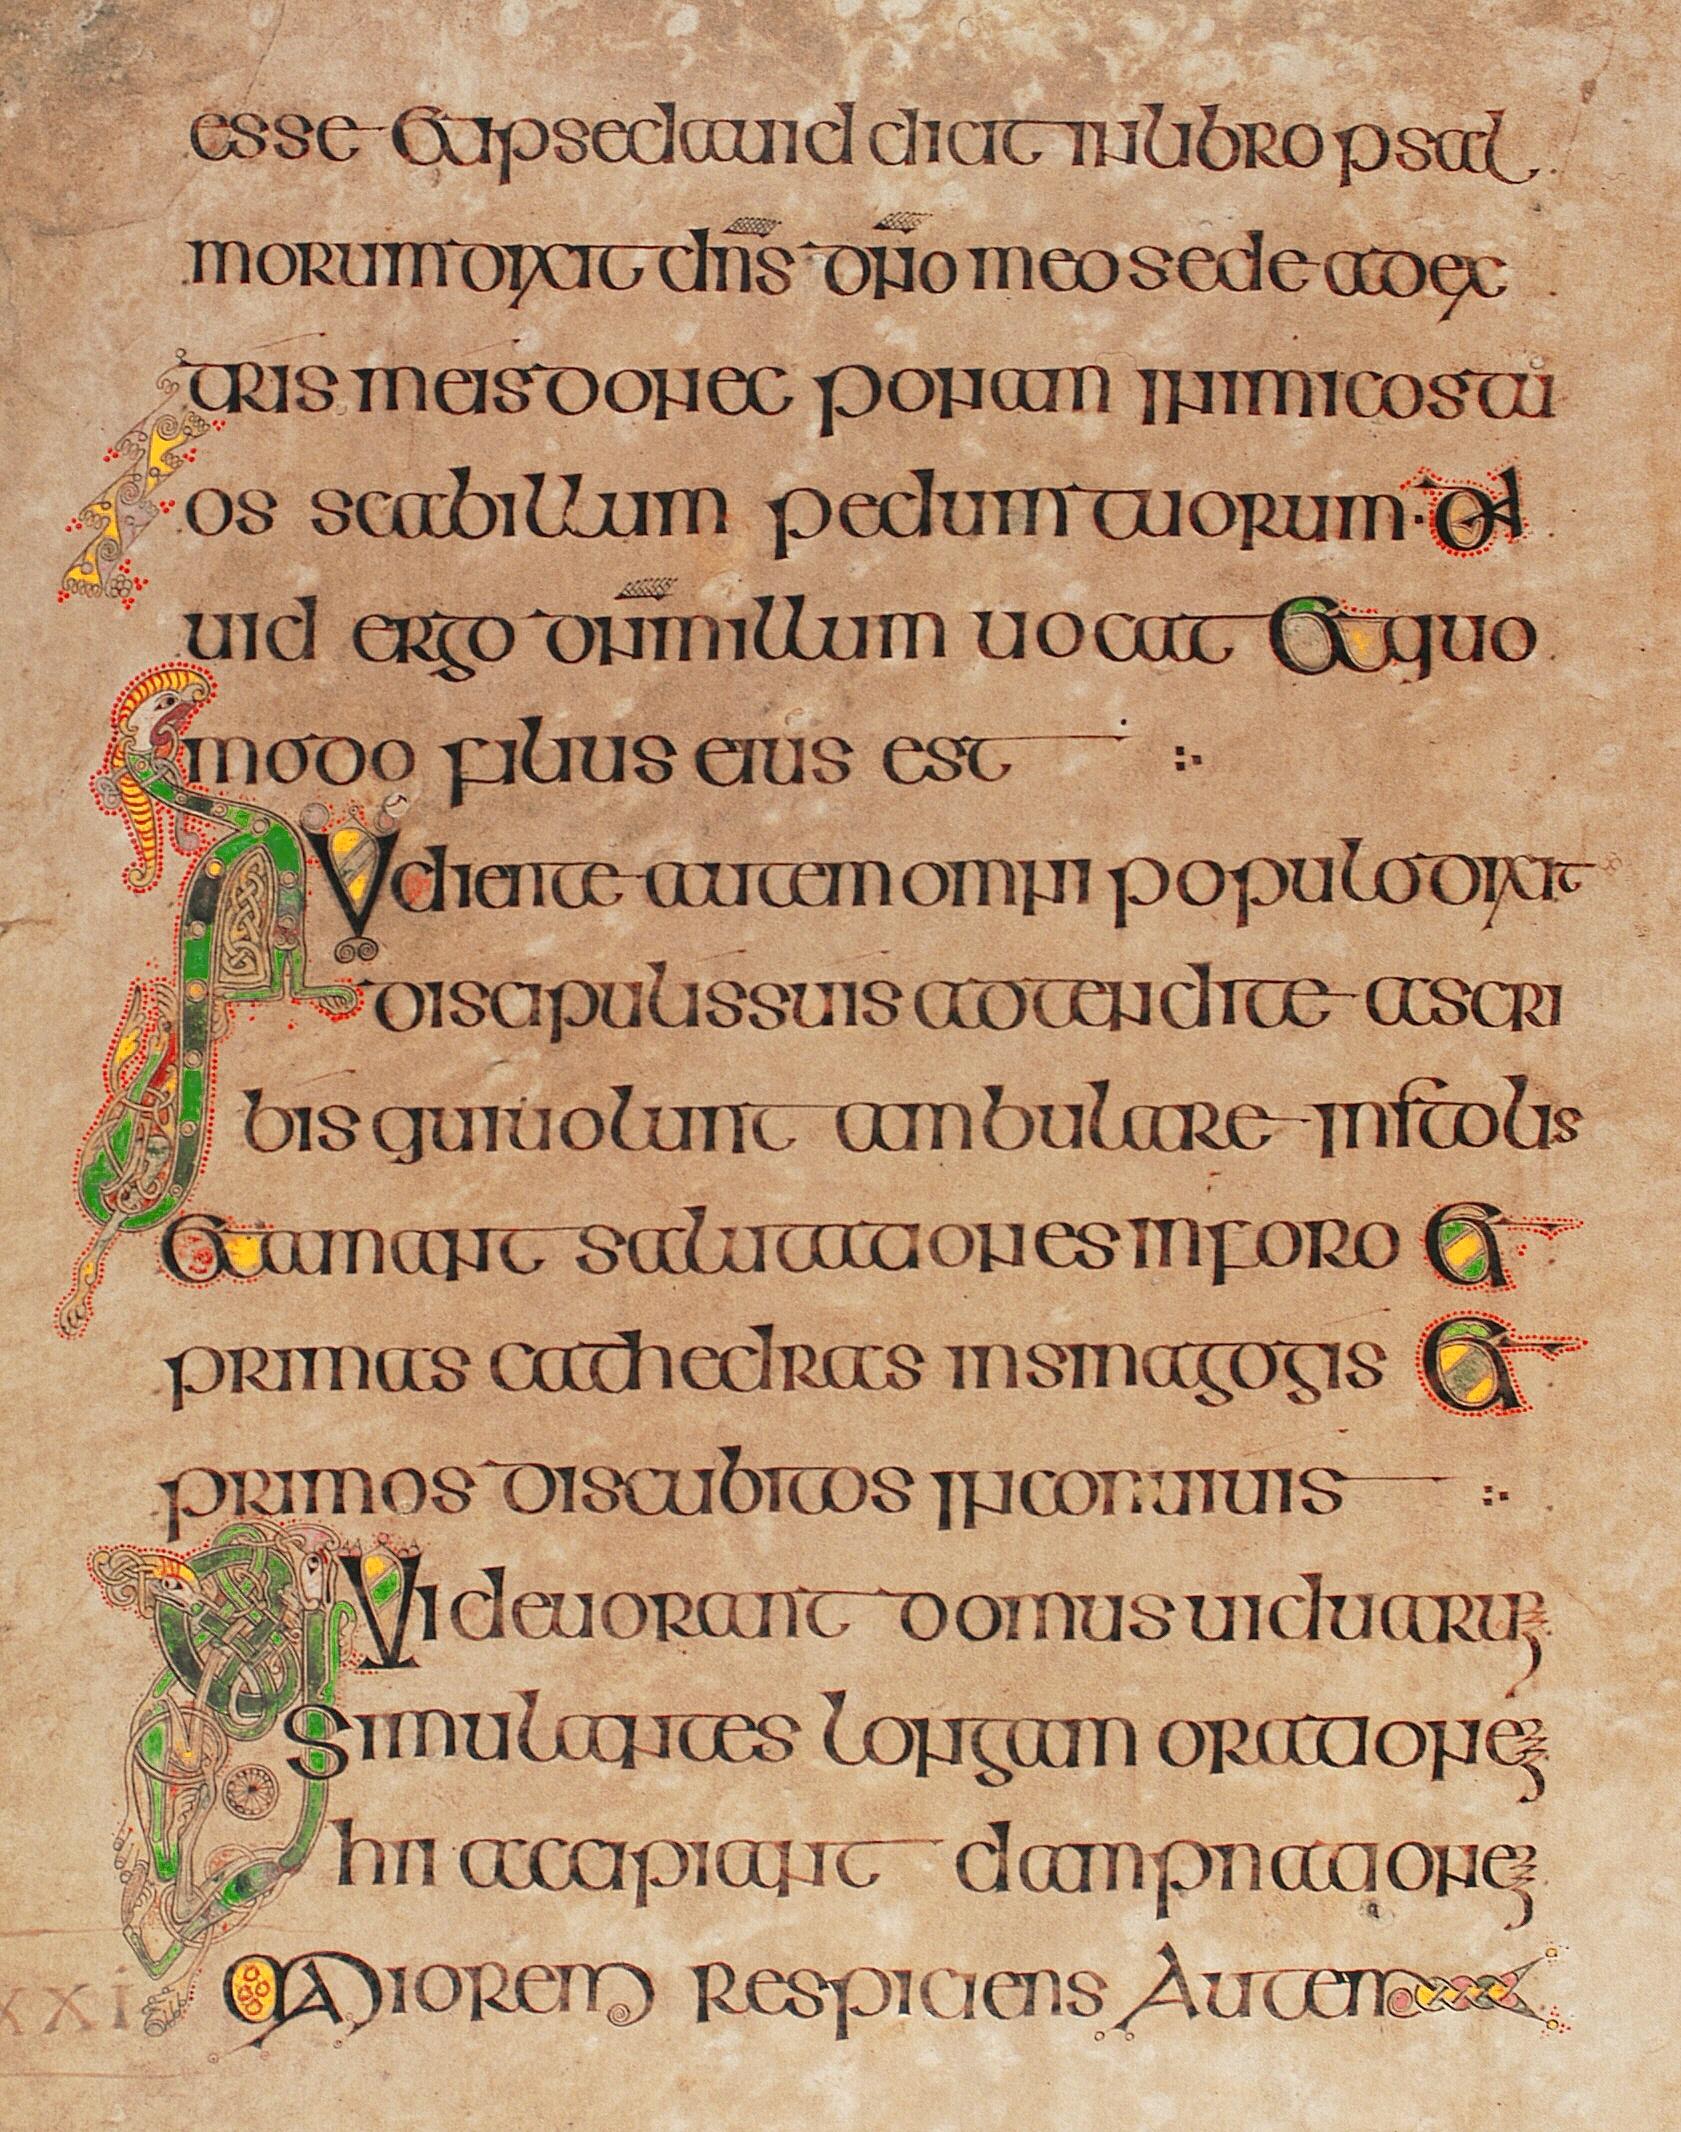 esse et ipse dauid dicit in libro psal
morum dixit dn̄s dn̄o meo sede ad ex
tris meis donec ponam inimicos tu
os scabillum pedum tuorum · Da
uid ergo dn̄m illum uocat et quo
modo filius eius est :·
Audiente autem omni populo dixit
discipulis suis adtendite a scri
bis qui uolunt ambulare in stolis
et amant salutationes in foro et
primas cathedras in sinagogis et
primos discubitos in conuiuiis :·
Qui deuorant domus uiduarum
simulantes longam orationem
hii accipiant dampnationem
maiorem Respiciens Autem
xxi